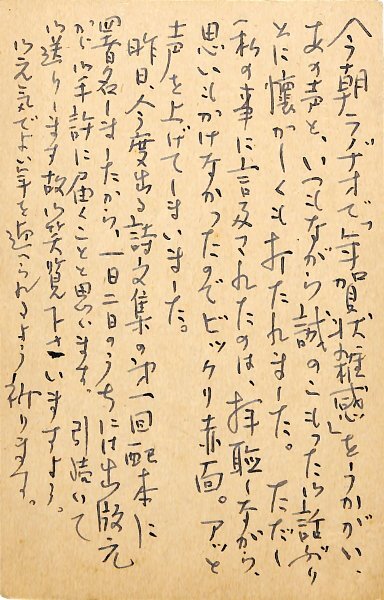 今朝ラヂオで「年賀状雑感」をうかがい、
あの声と、いつもながら誠のこもったお話ぶり
とに懐かしくも打たれました。ただし
私の事に言及されたのは、拝聴しながら、
思いもかけなかったのでビックリ赤面。アッと
声を上げてしまいました。
昨日、今度出る詩文集の第一回配本に
署名しましたから、一日二日のうちには出版元
からお手許に届くことと思います。引続いて
お送りします故御笑覧下さいますよう。
お元気でよい年を迎へられるよう祈ります。